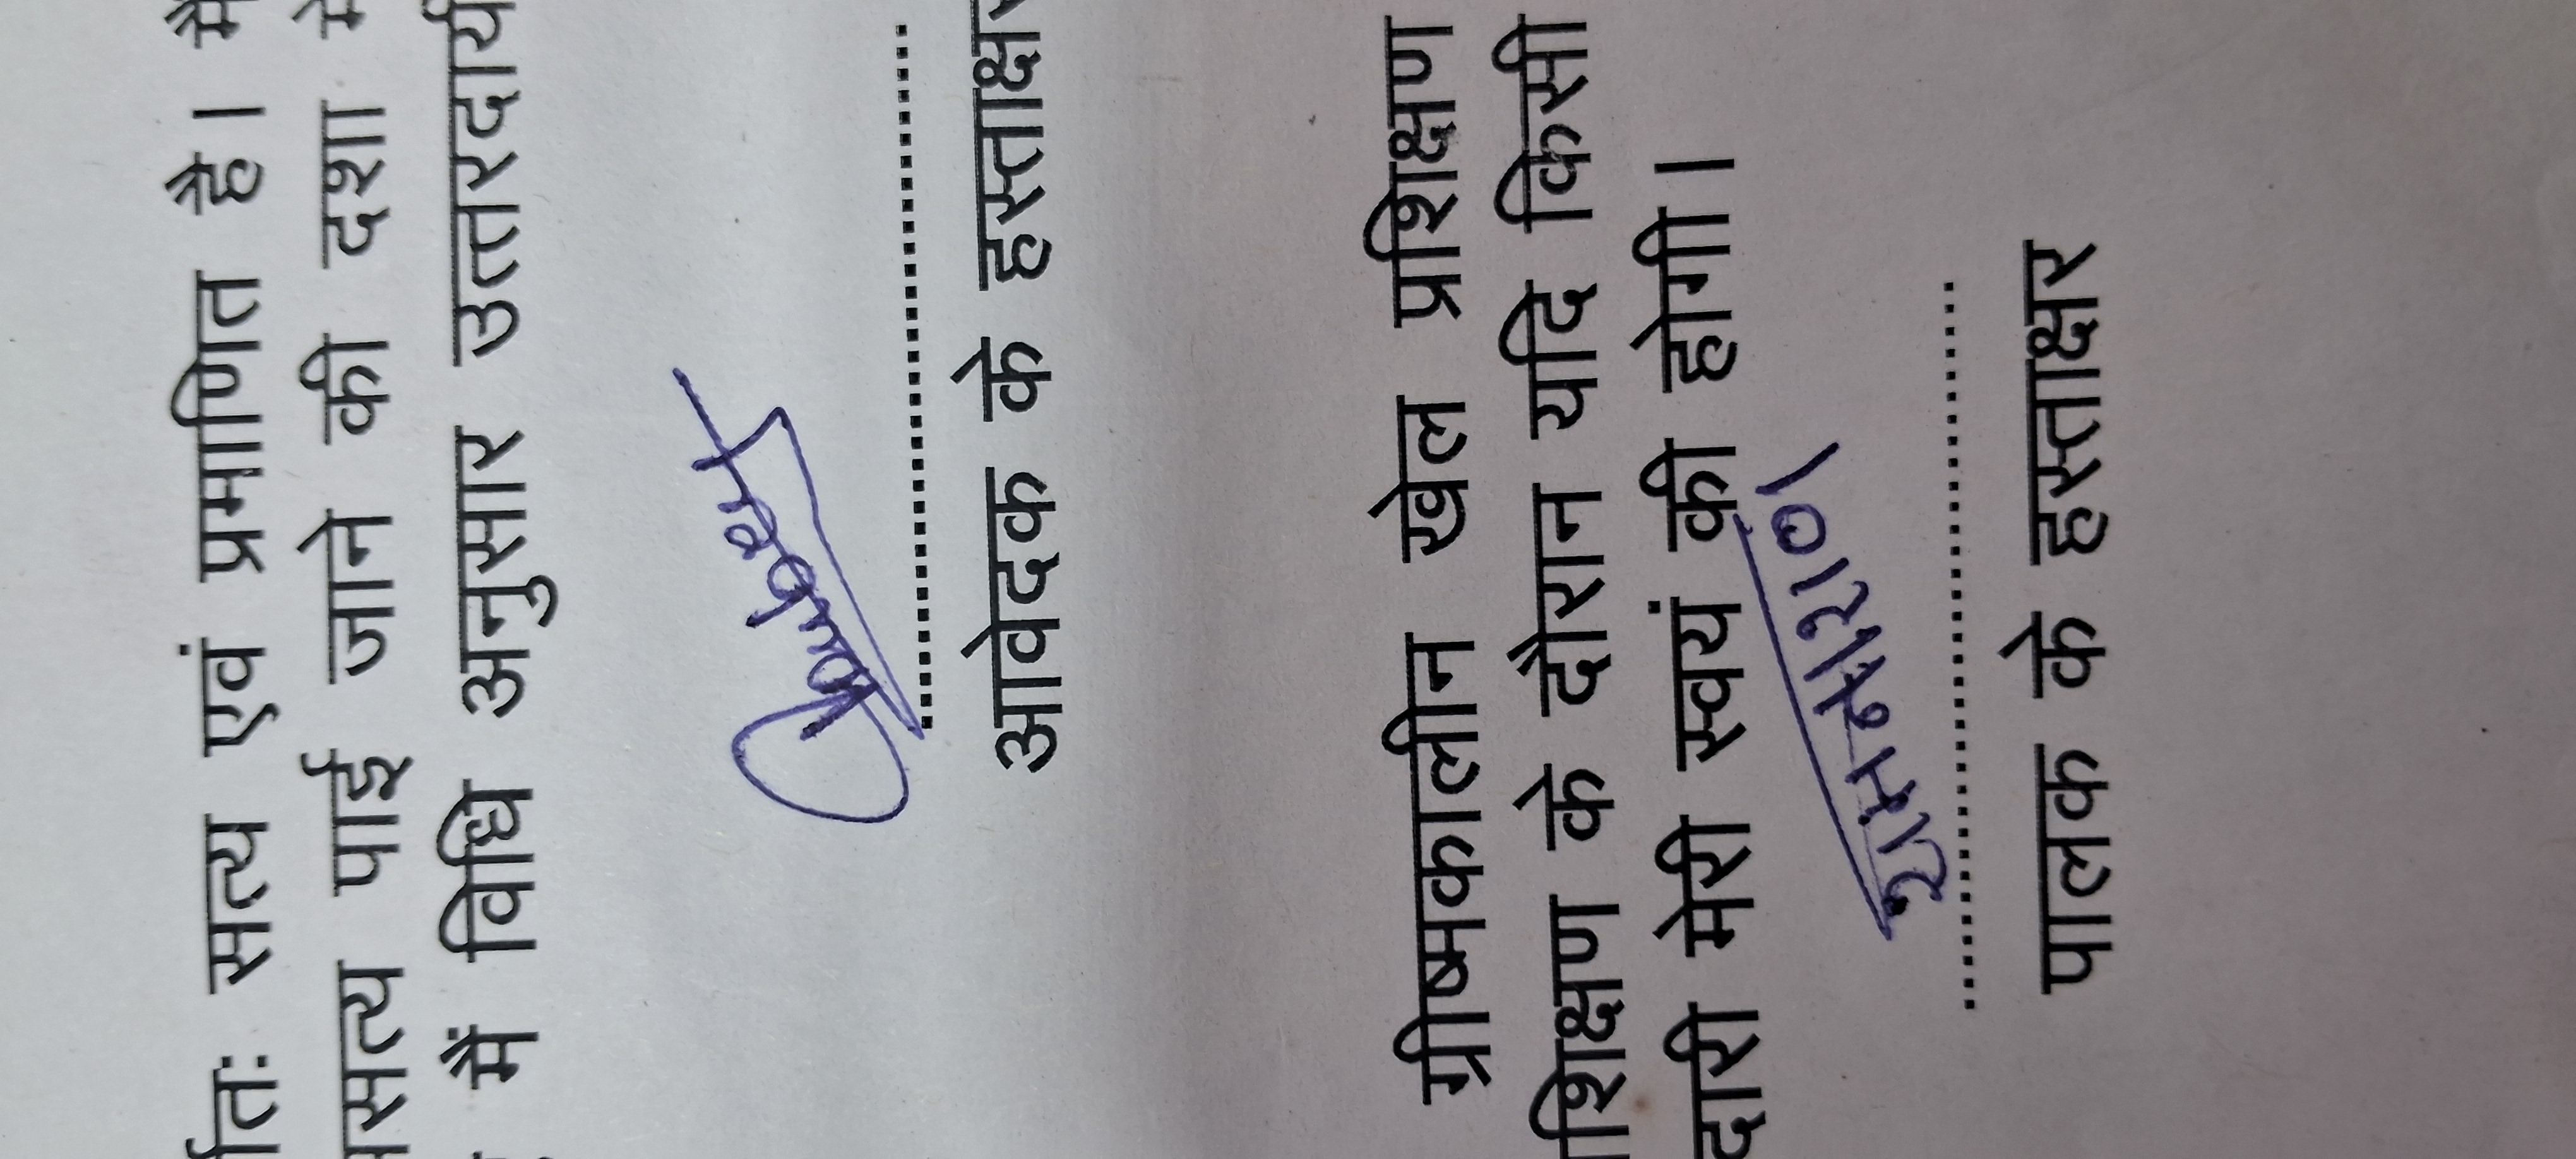 र्णतः सत्य एवं प्रमाणित है। मै
सत्य पाई जाने की दशा मे
में विधि अनुसार उत्तरदायी
आवेदक के हस्ताक्षर
ग्रीष्मकालीन खेल प्रशिक्षण
शिक्षण के दौरान यदि किसी
दारी मेरी स्वयं की होगी।
रामनारायण
पालक के हस्ताक्षर